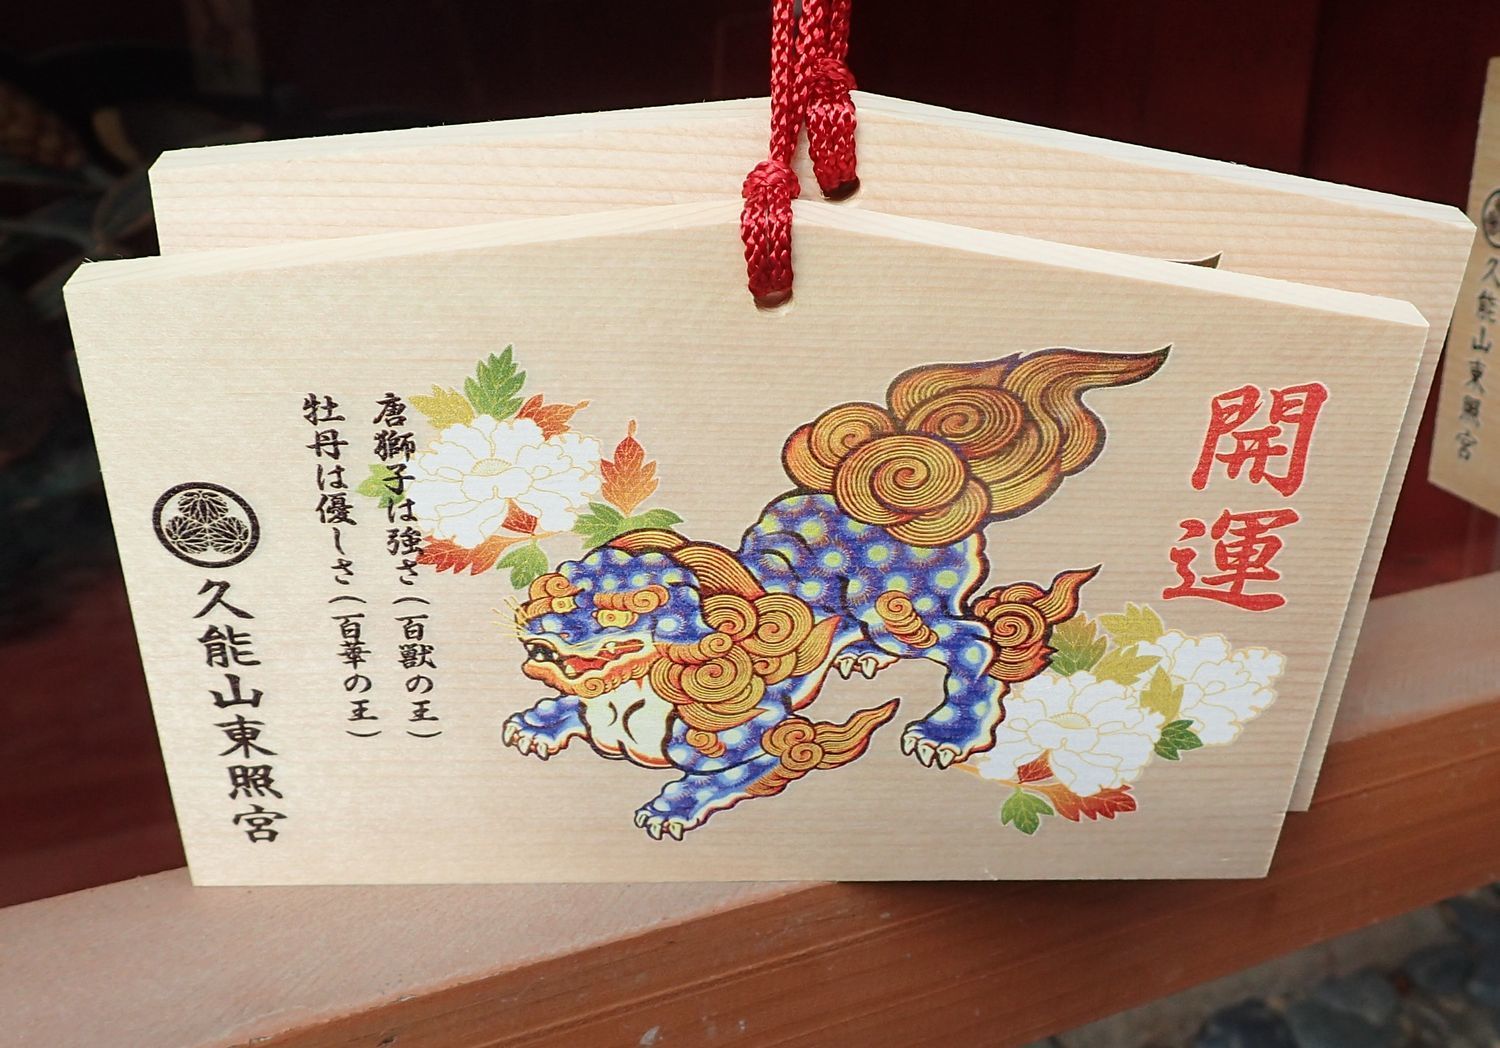 開運
唐獅子は強さ(百獣の王)
牡丹は優しさ(百華の王)
久能山東照宮
久能山東照宮